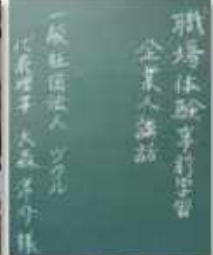 職場体験事前学習
企業人講話
一般社団法人 ツグル
代表理事 大森 洋介 様